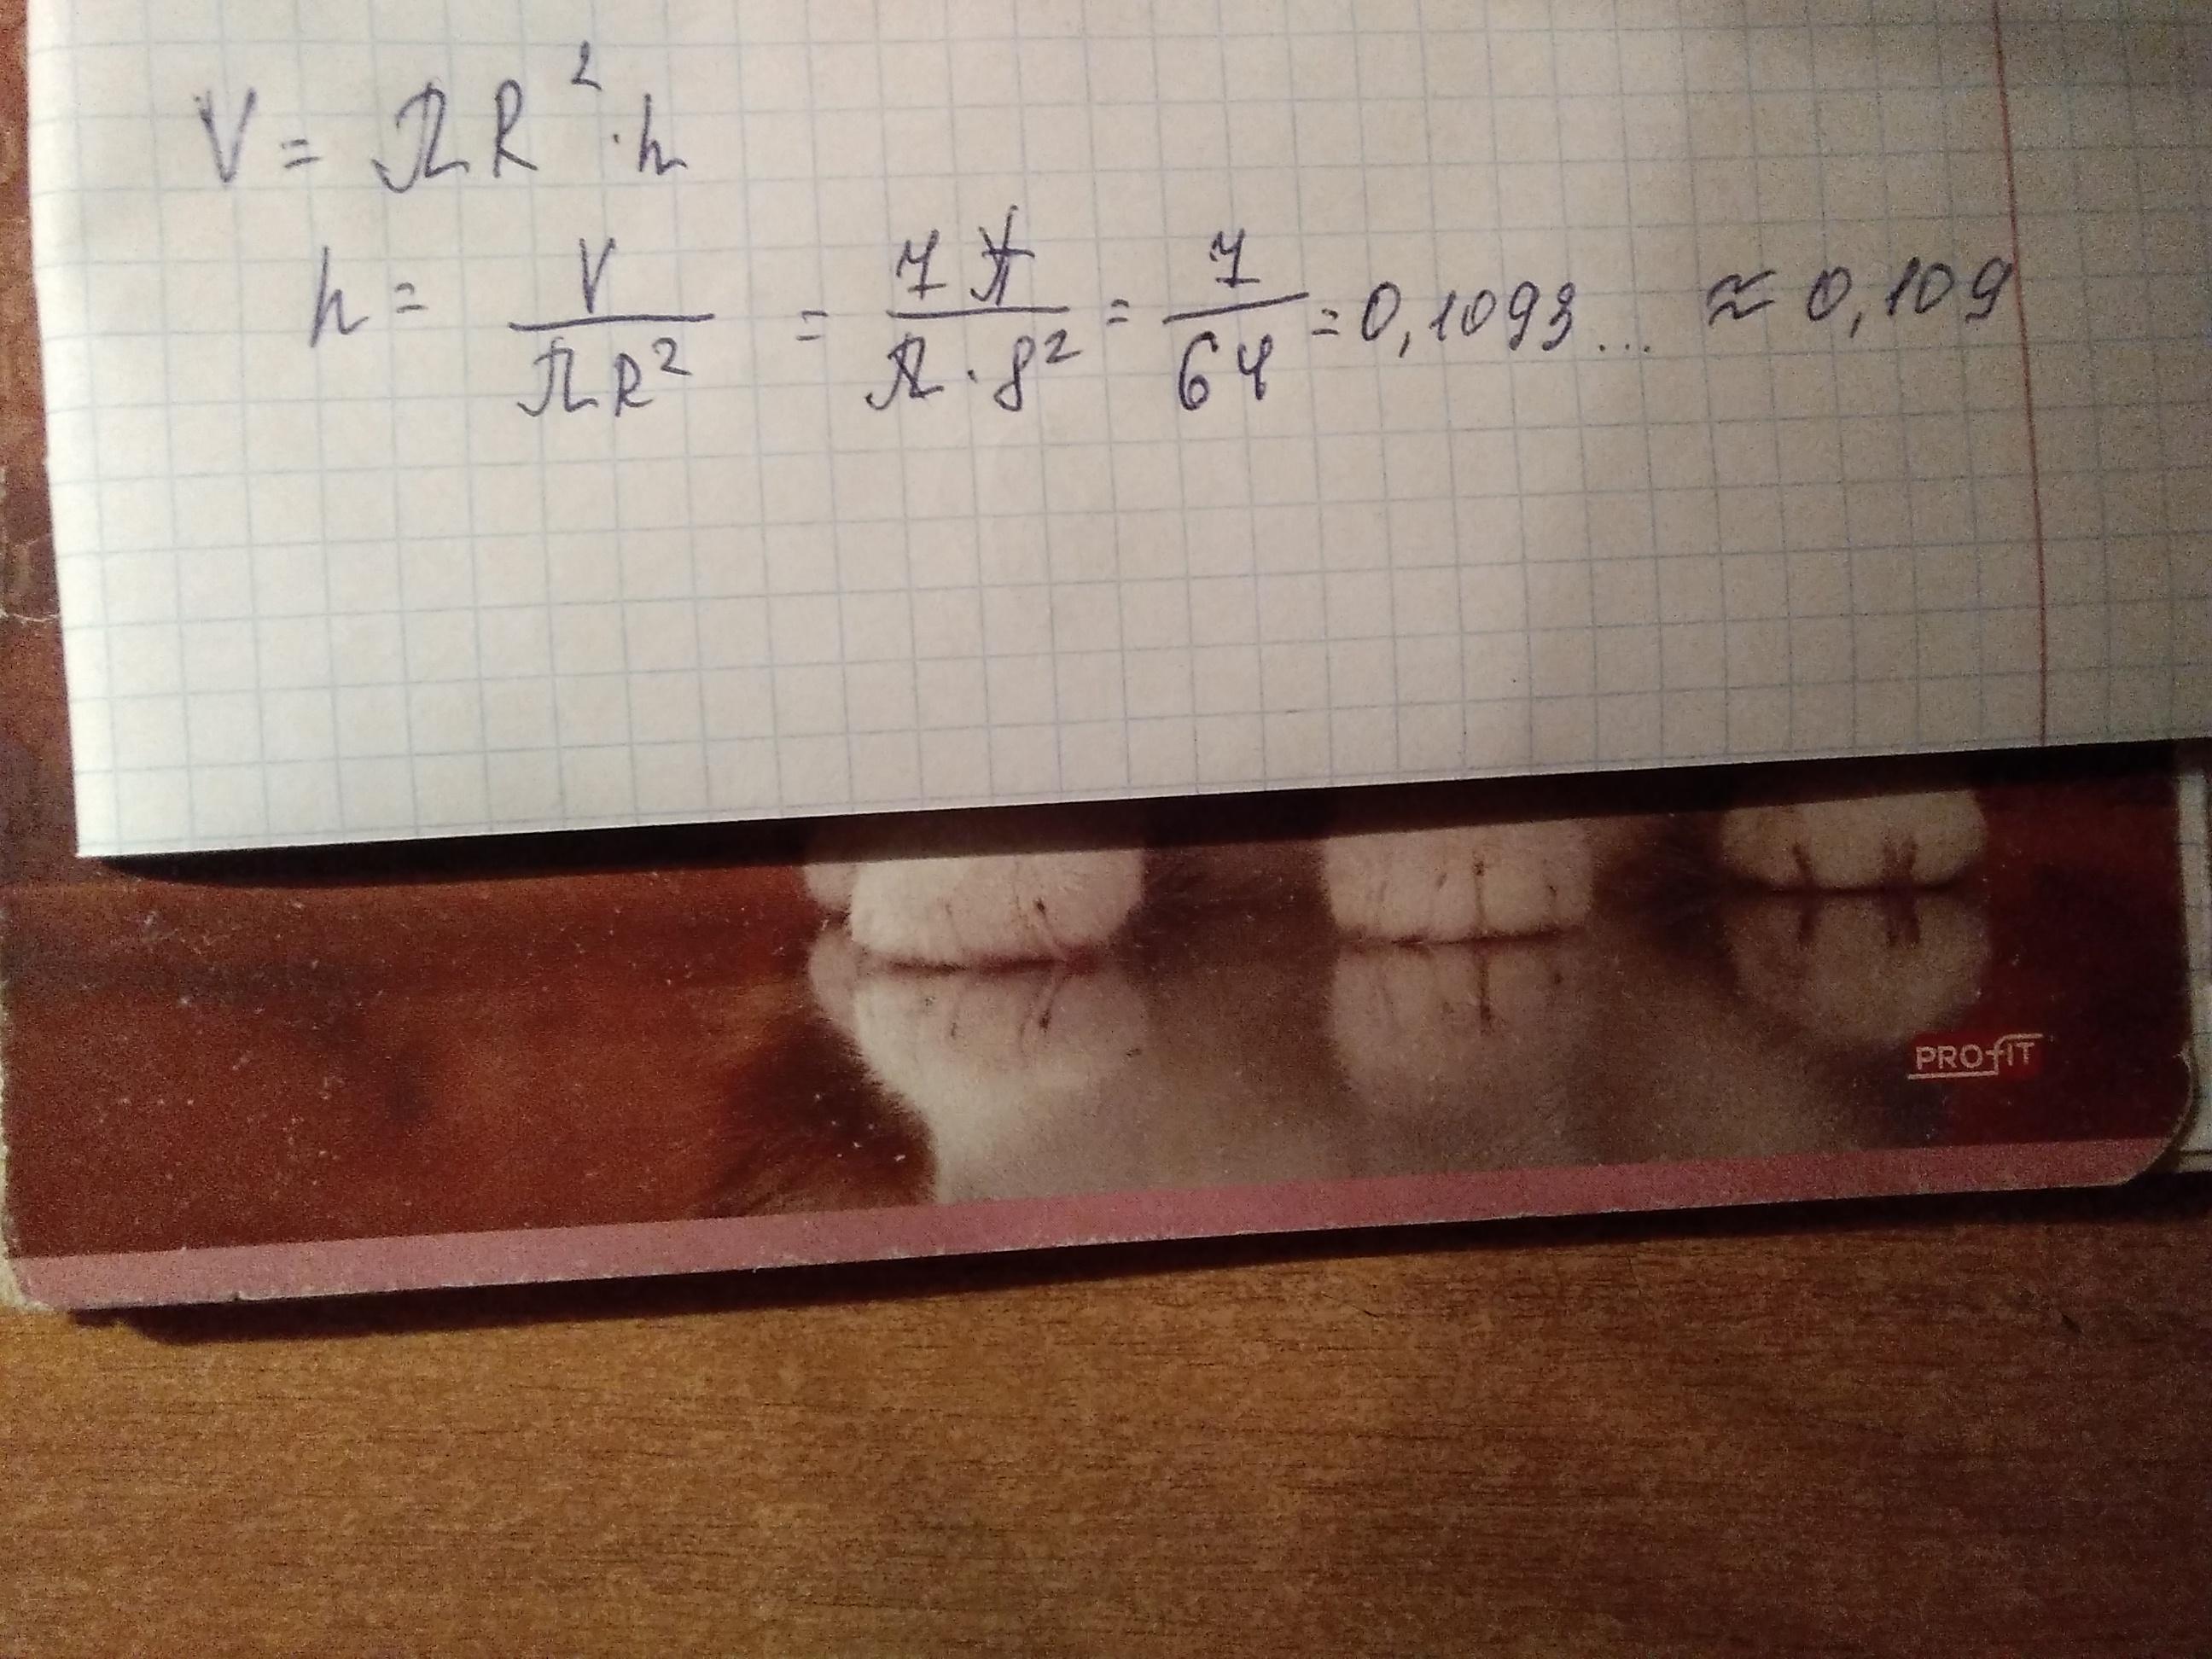 V = πR² · h
h = V/πR² = 7π/π·8² = 7/64 = 0,1093... ≈ 0,109
PROfIT